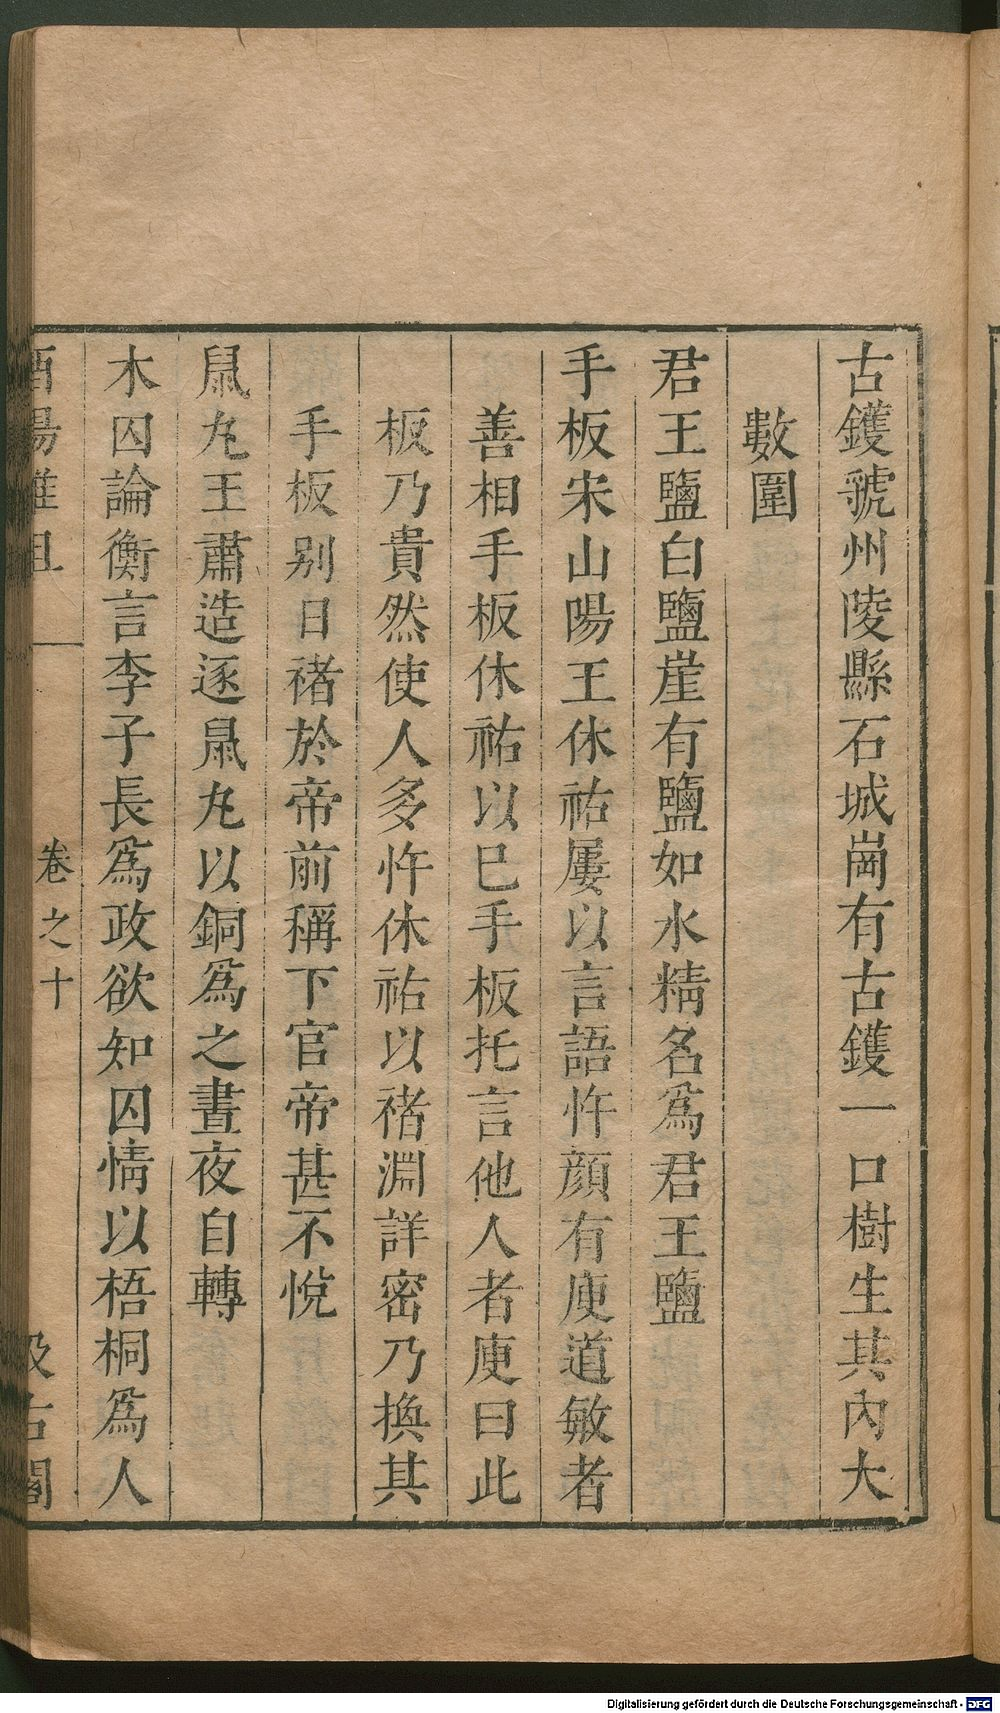 古鑊虢州陵縣石城崗有古鑊一口樹生其內大
數圍
君王鹽白鹽崖有鹽如水精名爲君王鹽
手板宋山陽王休祐屢以言語忤顏有庾道敏者
善相手板休祐以已手板托言他人者庾曰此
板乃貴然使人多忤休祐以褚淵詳密乃換其
手板別日褚於帝前稱下官帝甚不悅
鼠丸王肅造逐鼠丸以銅爲之晝夜自轉
木囚論衡言李子長爲政欲知囚情以梧桐爲人
酉陽雜俎 卷之十 汲古閣
Digitalisierung gefördert durch die Deutsche Forschungsgemeinschaft - DFG